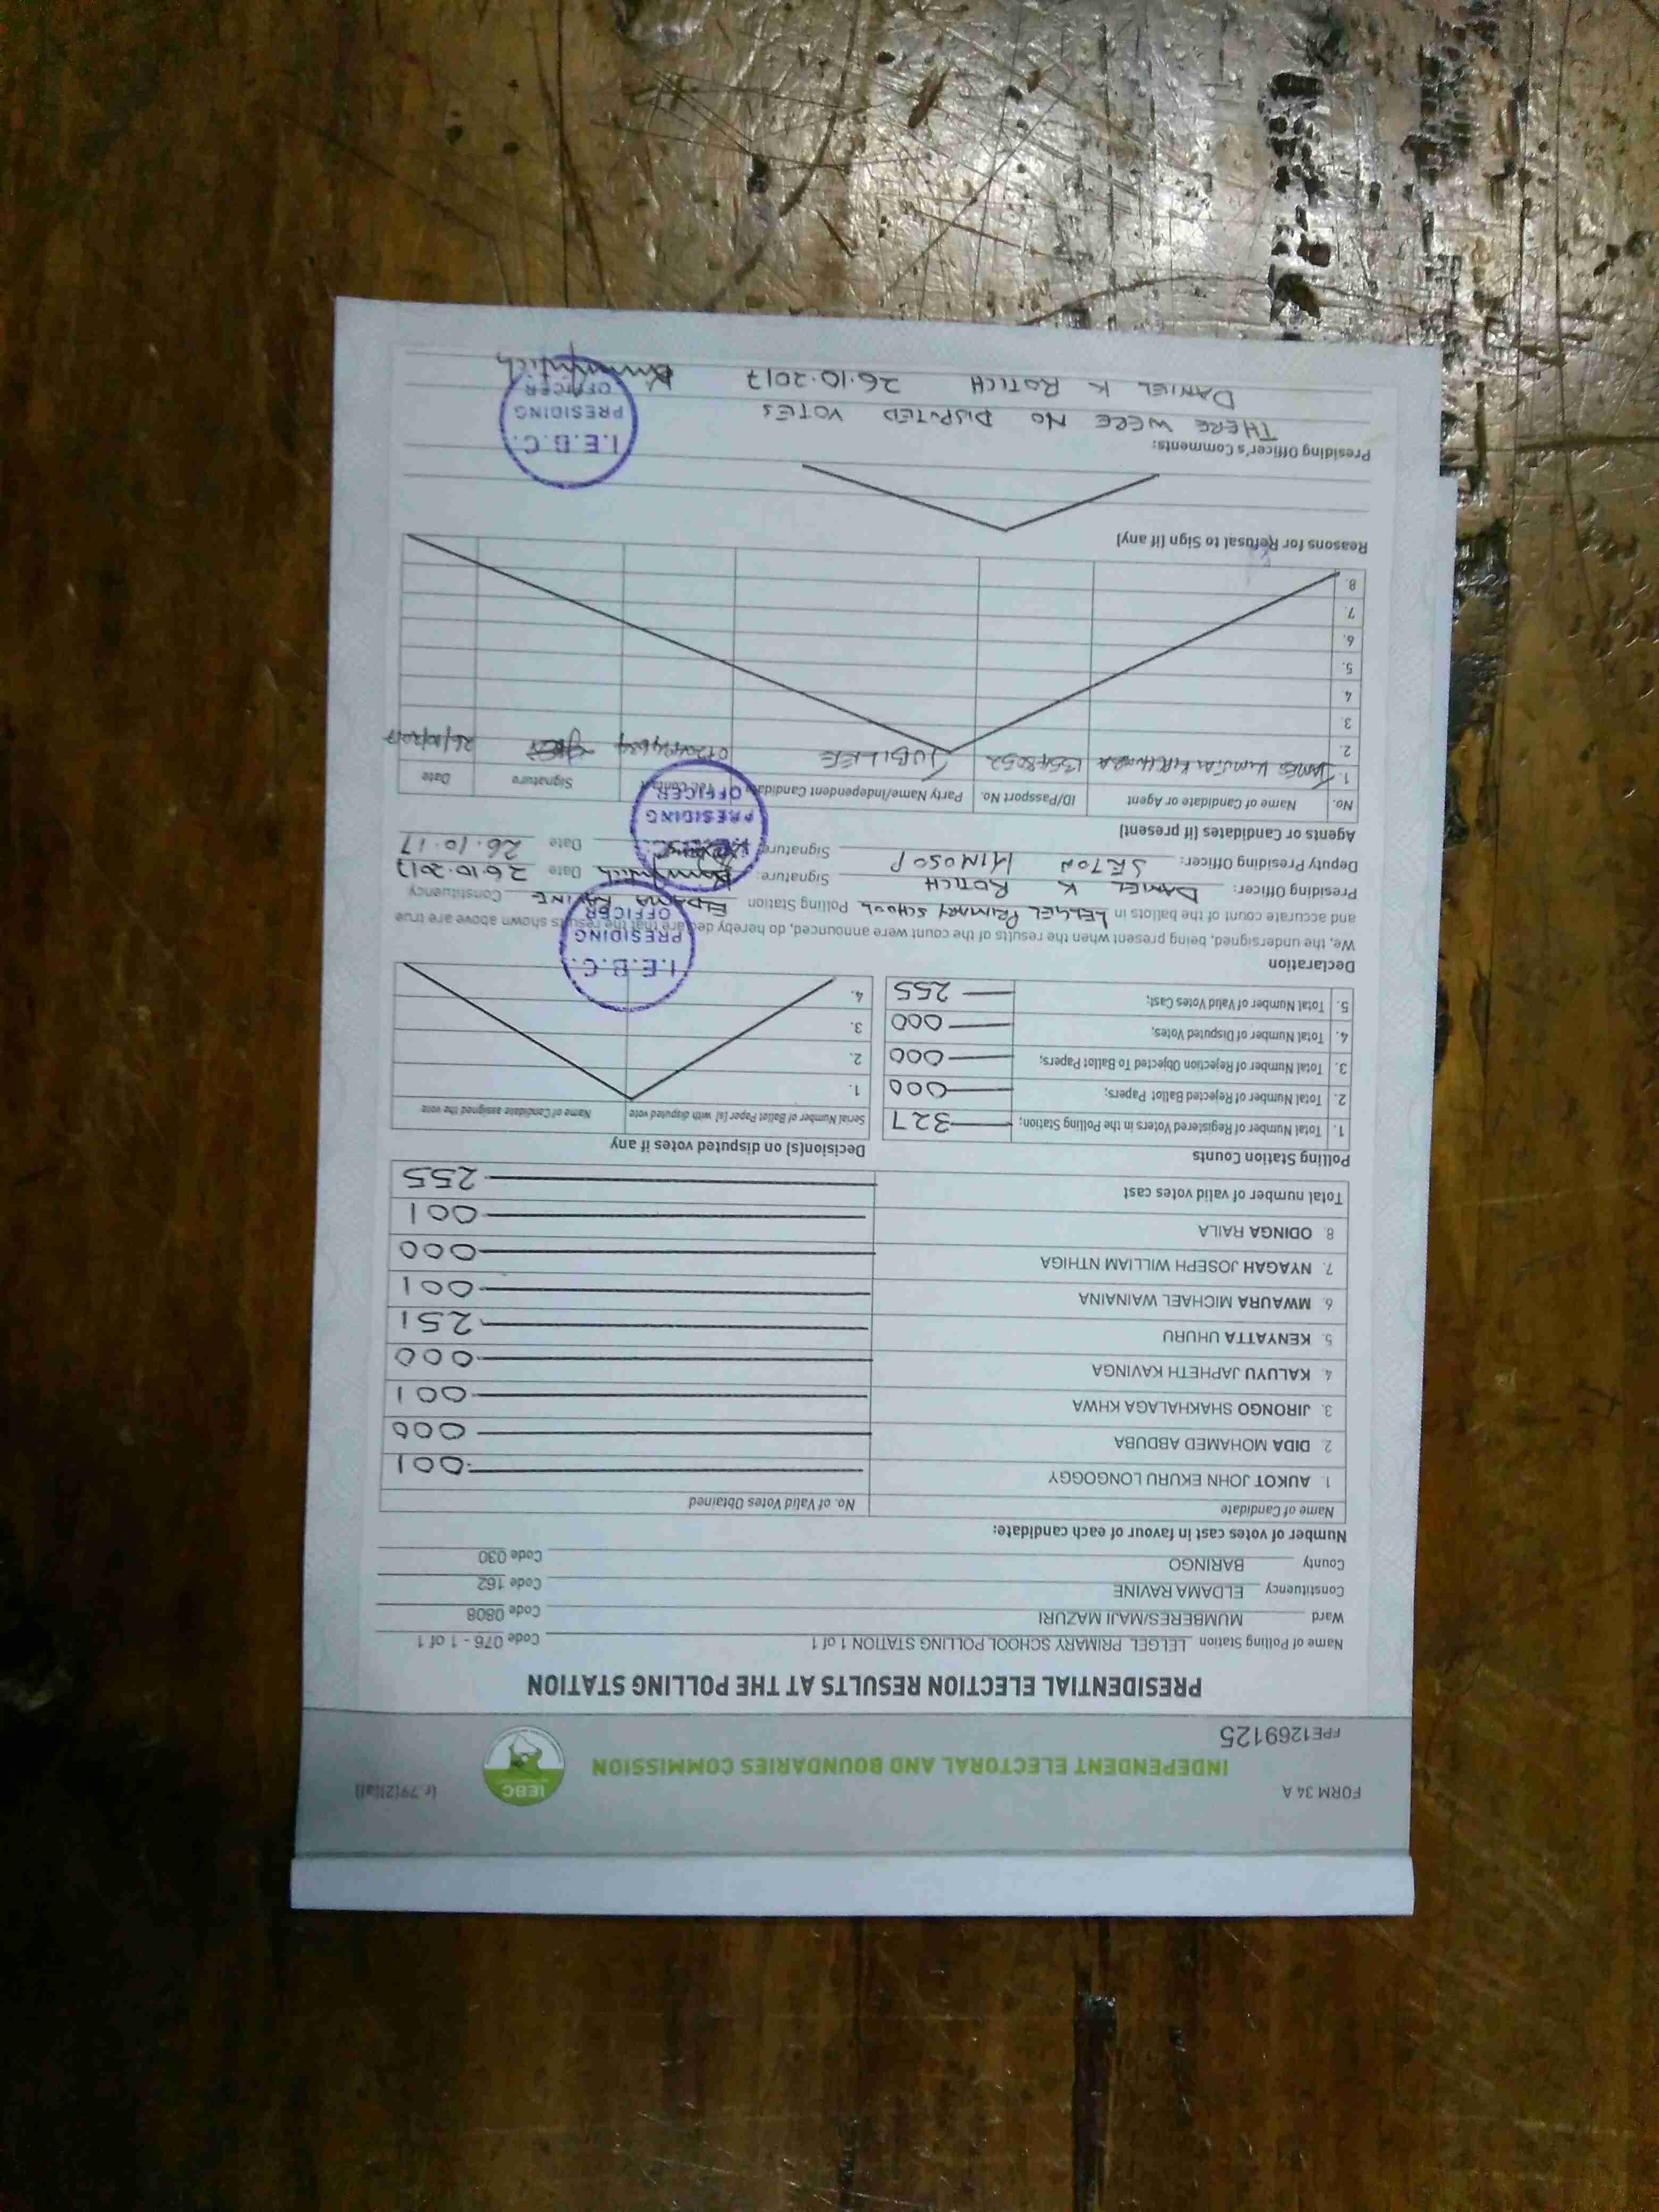 FORM 34 A
(r.79(2)(a))
INDEPENDENT ELECTORAL AND BOUNDARIES COMMISSION
IEBC
FPE1269125
PRESIDENTIAL ELECTION RESULTS AT THE POLLING STATION
Name of Polling Station LELGEL PRIMARY SCHOOL POLLING STATION 1 of 1 Code 076 - 1 of 1
Ward MUMBERES/MAJI MAZURI Code 0808
Constituency ELDAMA RAVINE Code 162
County BARINGO Code 030
Number of votes cast in favour of each candidate:
Name of Candidate No. of Valid Votes Obtained
1. AUKOT JOHN EKURU LONGOGGY 001
2. DIDA MOHAMED ABDUBA 000
3. JIRONGO SHAKHALAGA KHWA 001
4. KALUYU JAPHETH KAVINGA 000
5. KENYATTA UHURU 251
6. MWAURA MICHAEL WAINAINA 001
7. NYAGAH JOSEPH WILLIAM NTHIGA 000
8. ODINGA RAILA 001
Total number of valid votes cast 255
Polling Station Counts
1. Total Number of Registered Voters in the Polling Station; 327
2. Total Number of Rejected Ballot Papers; 000
3. Total Number of Rejection Objected To Ballot Papers; 000
4. Total Number of Disputed Votes; 000
5. Total Number of Valid Votes Cast; 255
Decision(s) on disputed votes if any
Serial Number of Ballot Paper (s) with disputed vote Name of Candidate assigned the vote
1.
2.
3.
4.
Declaration
We, the undersigned, being present when the results of the count were announced, do hereby declare that the results shown above are true
and accurate count of the ballots in LELGEL PRIMARY SCHOOL Polling Station ELDAMA RAVINE Constituency
I.E.B.C. PRESIDING OFFICER
Presiding Officer: DANIEL K ROTICH Signature: Date 26.10.2017
Deputy Presiding Officer: SETON MINOSOP Signature: Date 26.10.17
I.E.B.C. PRESIDING OFFICER
Agents or Candidates (if present)
No. Name of Candidate or Agent ID/Passport No. Party Name/Independent Candidate Tel. Contact Signature Date
1. JAMES 13548052 JUBILLEE 26/10/2017
2.
3.
4.
5.
6.
7.
8.
Reasons for Refusal to Sign (if any)
Presiding Officer's Comments:
THERE WERE NO DISPUTED VOTES
DANIEL K ROTICH 26.10.2017
I.E.B.C. PRESIDING OFFICER